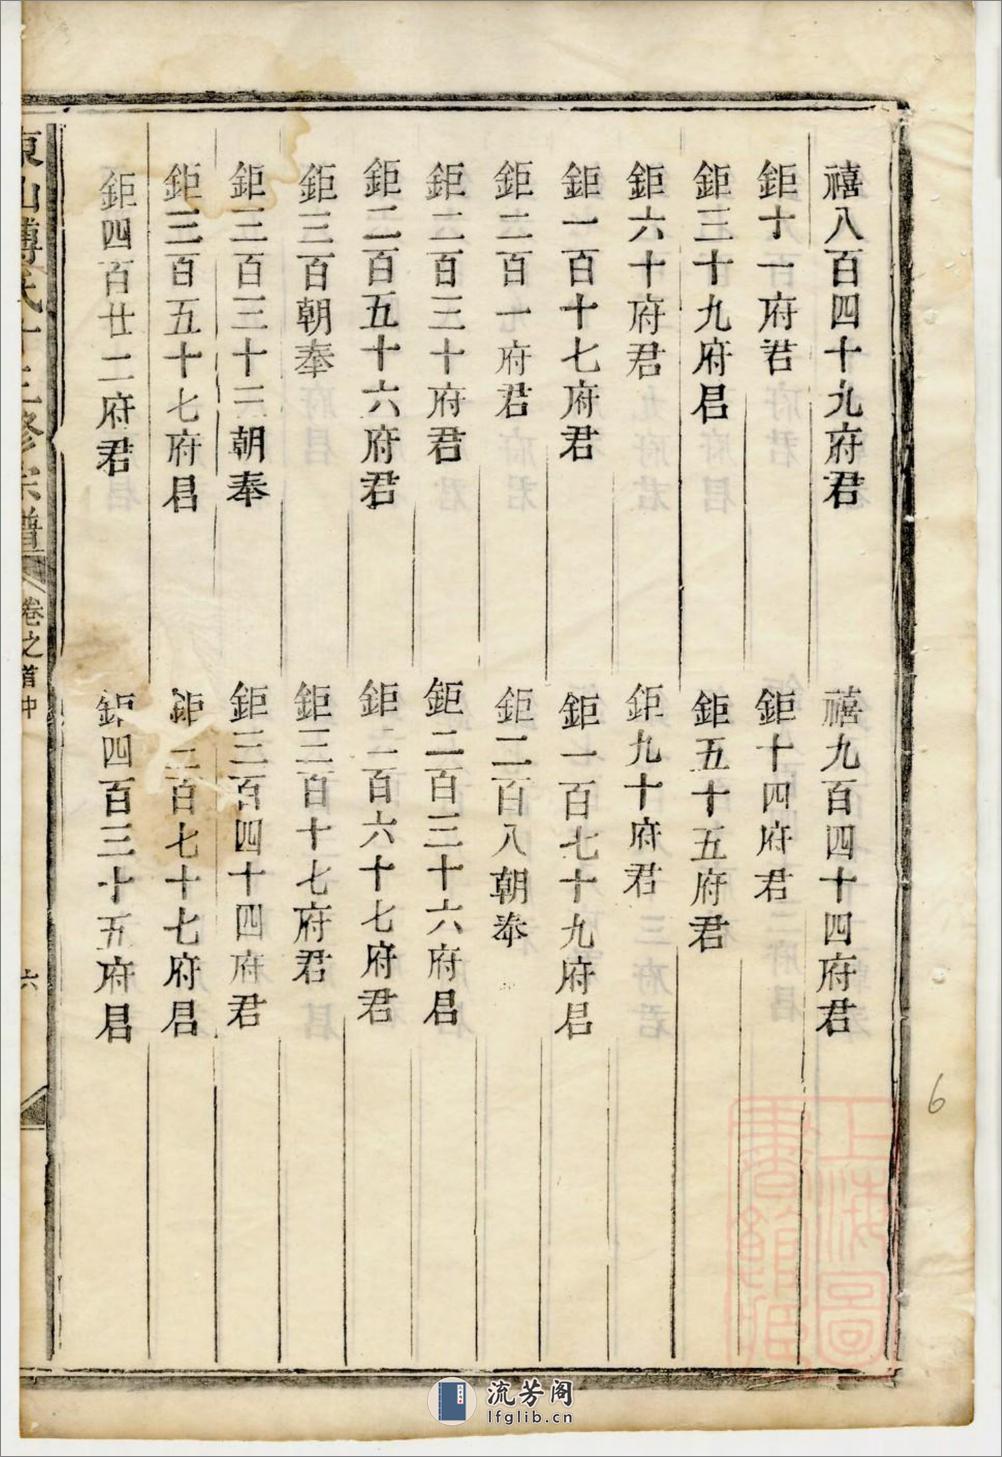 禧八百四十九府君
禧九百四十四府君
鉅十一府君
鉅十四府君
鉅三十九府君
鉅五十五府君
鉅六十府君
鉅九十府君
鉅一百十七府君
鉅一百七十九府君
鉅二百一府君
鉅二百八朝奉
鉅二百三十府君
鉅二百三十六府君
鉅二百五十六府君
鉅二百六十七府君
鉅三百朝奉
鉅三百十七府君
鉅三百三十三朝奉
鉅三百四十四府君
鉅三百五十七府君
鉅三百七十七府君
鉅四百廿二府君
鉅四百三十五府君
東山 氏十三修宗譜
卷之首中
六
6
上海圖書館藏
流芳阁
lfglib.cn